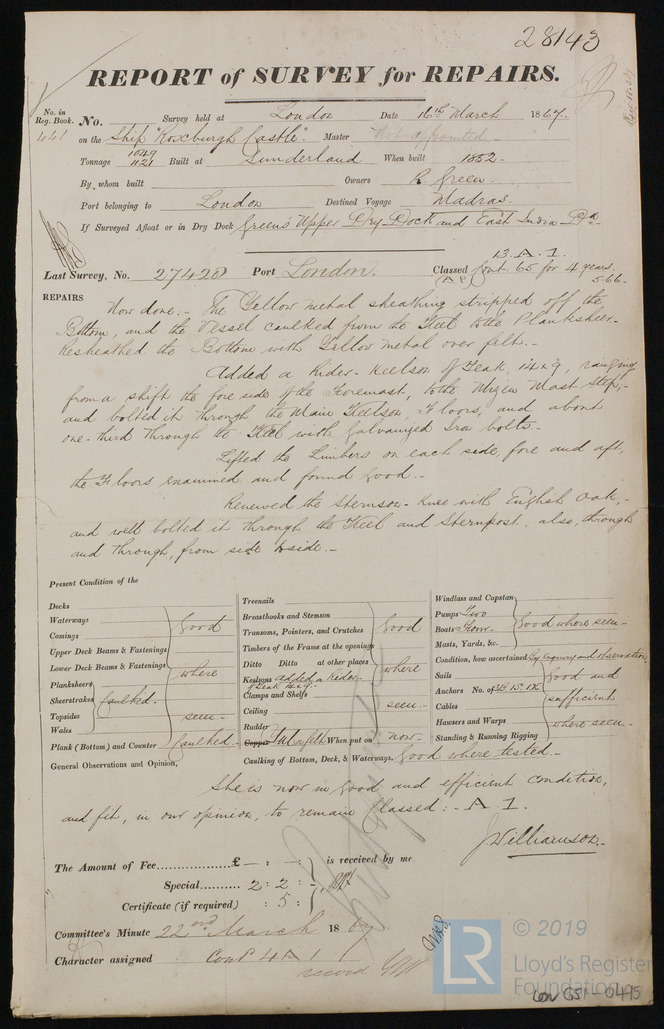 28143
REPORT of SURVEY for REPAIRS.
No. in Reg. Book. No. Survey held at London Date 16th March 1867.
441 on the Ship "Roxburgh Castle" Master Not appointed
Tonnage 1049 1121 Built at Sunderland When built 1852.
By whom built Owners R. Green.
Port belonging to London Destined Voyage Madras.
If Surveyed Afloat or in Dry Dock Green's Upper Dry-Dock and East India Dk
13. A. 1.
Last Survey, No. 27428 Port London. Classed Cont. 65 for 4 years.
(A.P.) 5.66.
REPAIRS
Now done. - The Yellow metal sheathing stripped off the
Bottom, and the Vessel caulked from the Keel to the Planksheer.
Resheathed the Bottom with Yellow metal over felt. -
Added a Rider-Keelson of Teak, 14x9, ranging
from a shift the fore side of the Foremast, to the Mizen Mast Step, -
and bolted it through the Main Keelson, Floors, and about
one-third through the Keel with Galvanized Iron bolts. -
Lifted the Limbers on each side, fore and aft,
the Floors examined and found good. -
Renewed the Sternson-Knee with English Oak, -
and well bolted it through the Keel and Sternpost, also, through
and through, from side to side. -
Present Condition of the
Decks
Waterways
Comings
Upper Deck Beams & Fastenings
Lower Deck Beams & Fastenings
Planksheers
Sheerstrakes
Topsides
Wales
Good
where
seen -
Caulked -
Plank (Bottom) and Counter Caulked -
General Observations and Opinion,
Treenails
Breasthooks and Stemson
Transoms, Pointers, and Crutches
Timbers of the Frame at the openings
Ditto Ditto at other places
Keelsons added a Rider
Teak 14x9 -
Clamps and Shelfs
Ceiling
Rudder
Good
where
seen -
Copper When put on now -
Caulking of Bottom, Deck, & Waterways. Good where tested -
Windlass and Capstan
Pumps Two
Boats Four
Masts, Yards, &c.
Good where seen -
Condition, how ascertained By enquiry and observation
Sails
Anchors No. of
Cables
Hawsers and Warps
Standing & Running Rigging
Good and
sufficient
where seen -
She is now in good and efficient condition,
and fit, in our opinion, to remain Classed: - A. 1.
J Williamson. -
The Amount of Fee £ - : - : is received by me.
Special 2 : 2 : -
Certificate (if required) : 5 :
Committee's Minute 22nd March 1867
Character assigned Contd 4 A 1
© 2019
LR
Lloyd's Register
Foundation
LON 651-0495